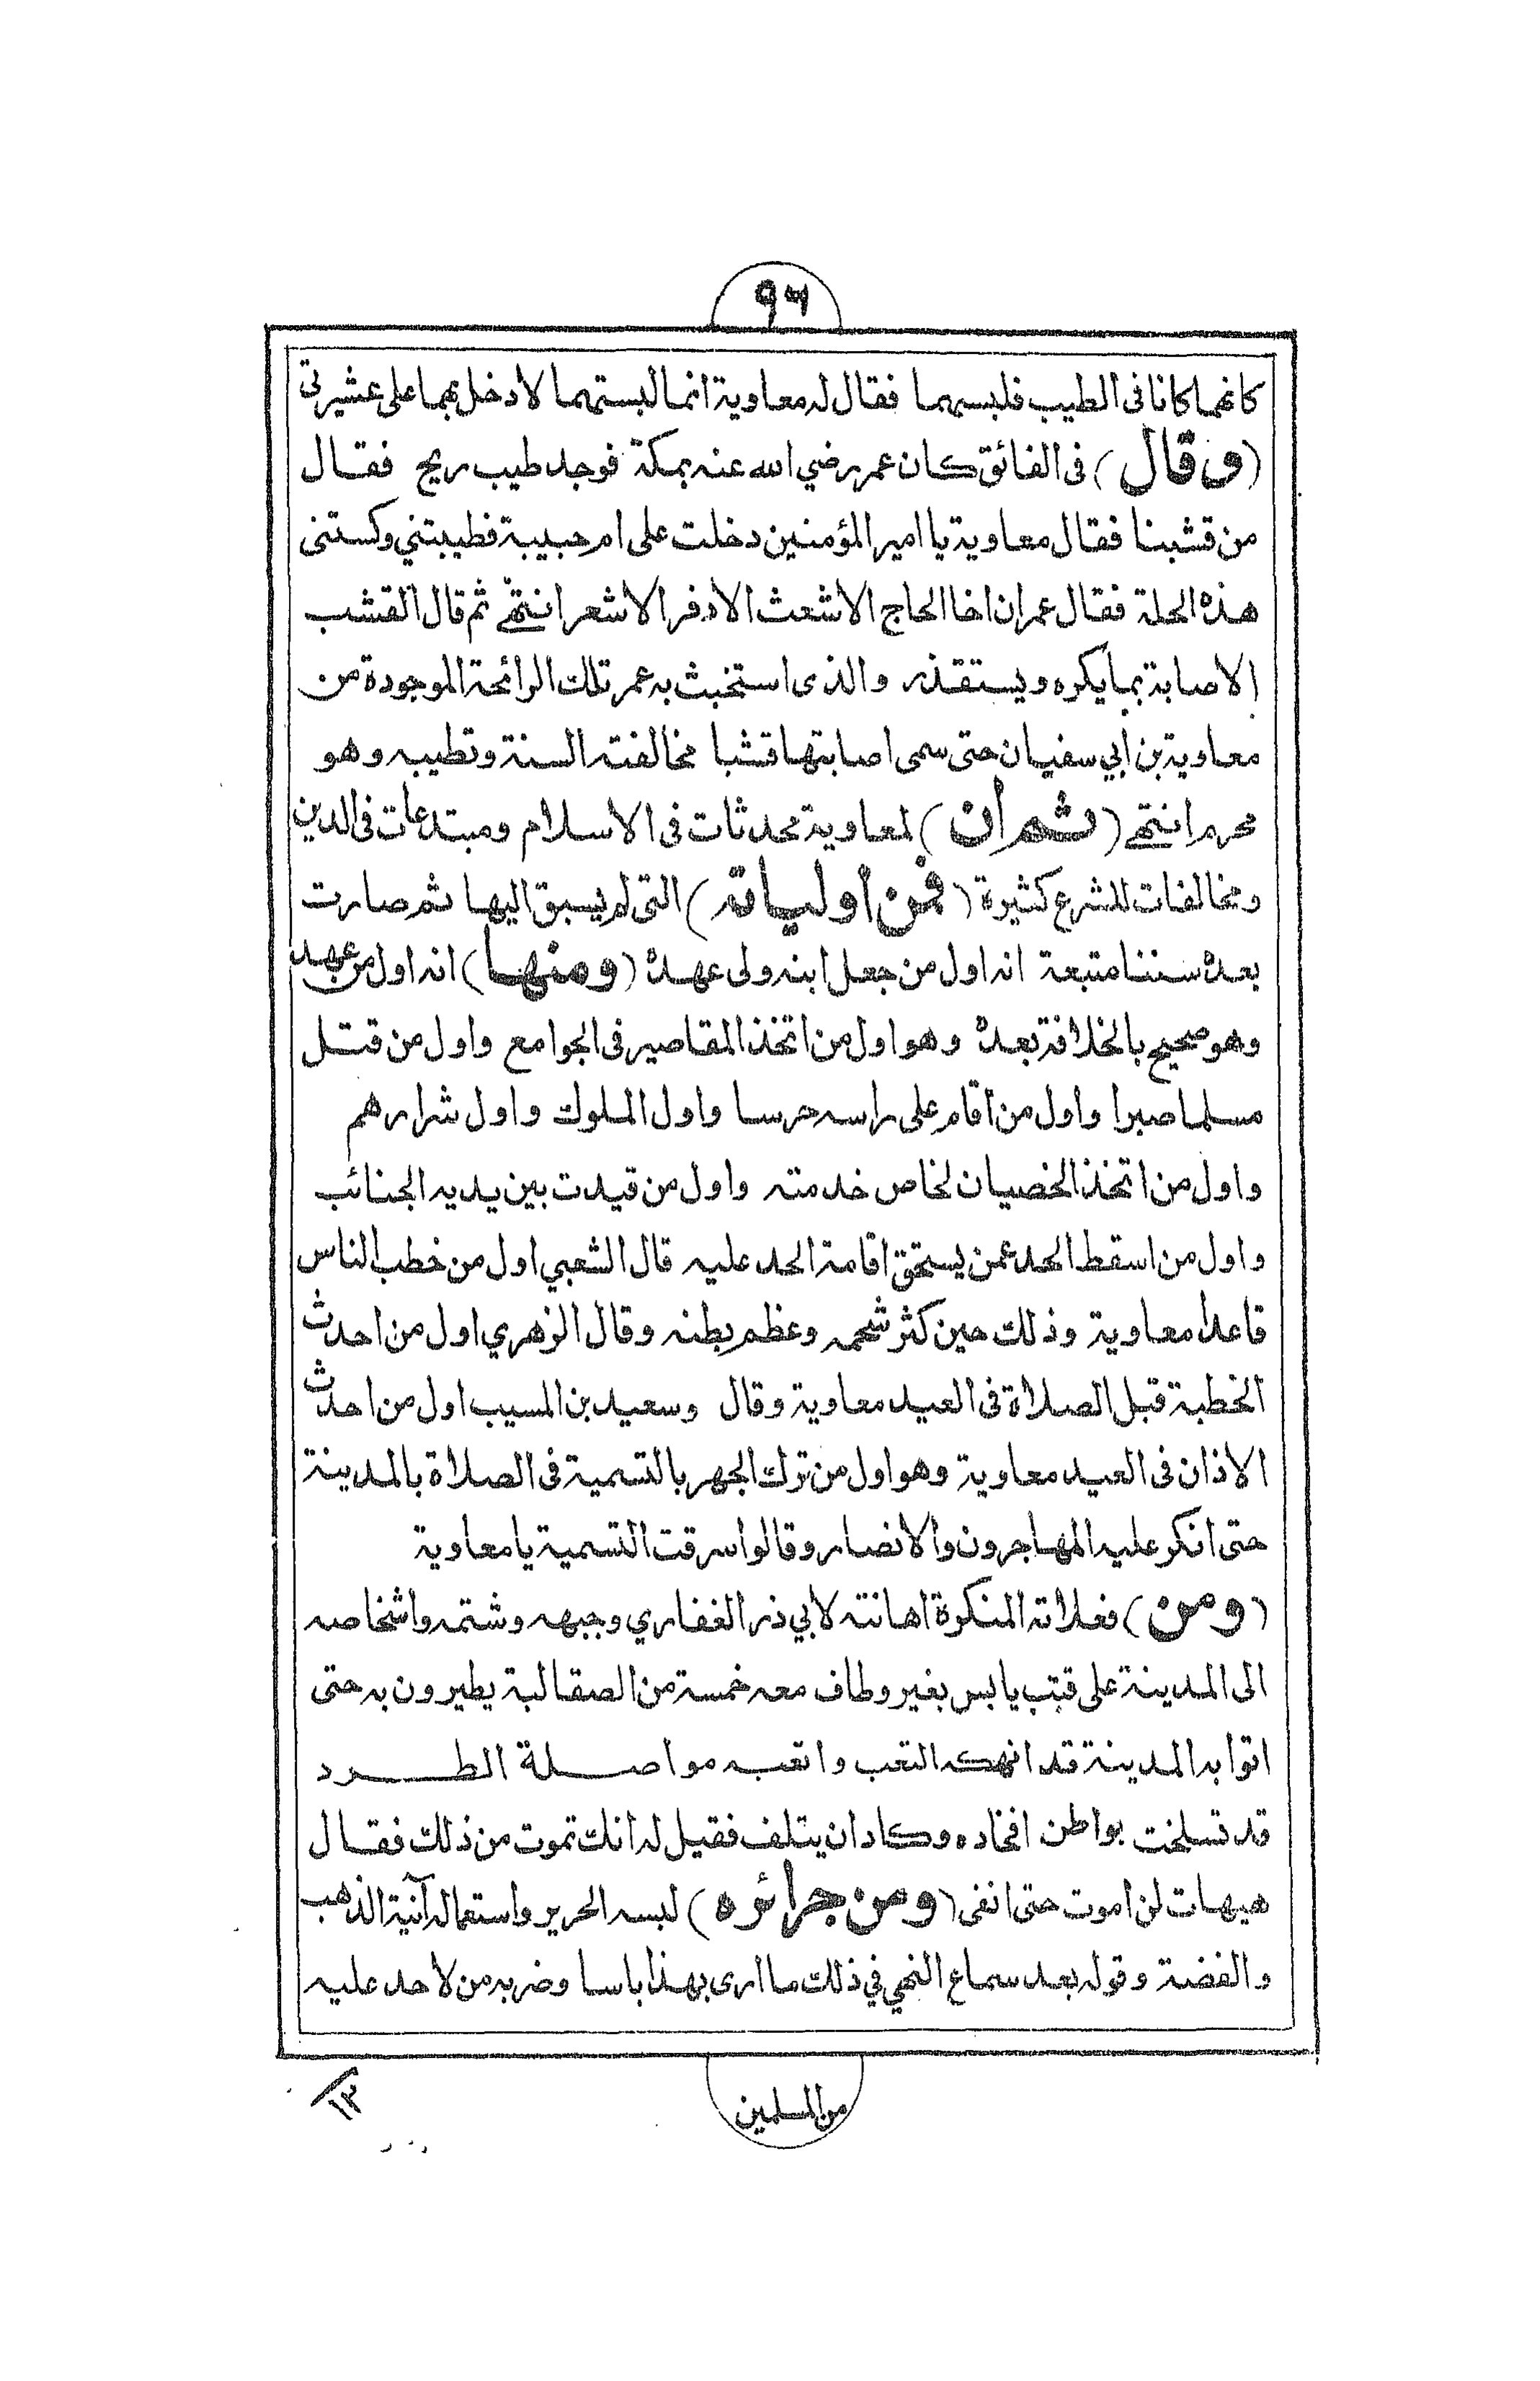 ٩٦
كانهما كانا فى الطيب فلبسهما فقال له معاوية انما لبستهما لادخل بهما على عشيرتى
(وقال) فى الفائق كان عمر رضي الله عنه بمكة فوجد طيب ريح فقال
من قشبنا فقال معاوية يا امير المؤمنين دخلت على ام حبيبة فطيبتني وكستنى
هذه الحلة فقال عمر ان اخا الحاج الاشعث الادفر الاشعر انتهى ثم قال القشب
الاصابة بما يكره ويستقذر والذى استخبث به عمر تلك الرائحة الموجودة من
معاوية بن ابي سفيان حتى سمى اصابتها قشبا مخالفته السنة وتطيبه وهو
محرم انتهى (ثم ان) لمعاوية محدثات فى الاسلام ومبتدعات فى الدين
ومخالفات للشرع كثيرة (فمن اولياته) التى لم يسبق اليها ثم صارت
بعده سننا متبعة انه اول من جعل ابنه ولى عهده (ومنها) انه اول من عهد
وهو صحيح بالخلافة بعده وهو اول من اتخذ المقاصير فى الجوامع واول من قتل
مسلما صبرا واول من اقام على راسه حرسا واول الملوك واول شرارهم
واول من اتخذ الخصيان لخاص خدمته واول من قيدت بين يديه الجنائب
واول من اسقط الحد عمن يستحق اقامة الحد عليه قال الشعبي اول من خطب الناس
قاعدا معاوية وذلك حين كثر شحمه وعظم بطنه وقال الزهري اول من احدث
الخطبة قبل الصلاة فى العيد معاوية وقال وسعيد بن المسيب اول من احدث
الاذان فى العيد معاوية وهو اول من ترك الجهر بالتسمية فى الصلاة بالمدينة
حتى انكر عليه المهاجرون والانصار وقالوا سرقت التسمية يا معاوية
(ومن) فعلاته المنكرة اهانته لابي ذر الغفاري وجبهه وشتمه واشخاصه
الى المدينة على قتب يابس بغير وطاف معه خمسة من الصقالبة يطيرون به حتى
اتوا به المدينة قد انهكه التعب واتعبه مواصلة الطرد
قد تسلخت بواطن افخاده وكاد ان يتلف فقيل له انك تموت من ذلك فقال
هيهات لن اموت حتى انفى (ومن جرائره) لبسه الحرير واستعماله آنية الذهب
والفضة وقوله بعد سماع النهي في ذلك ما ارى بهذا باسا وضربه من لا حد عليه
من المسلمين
١٣